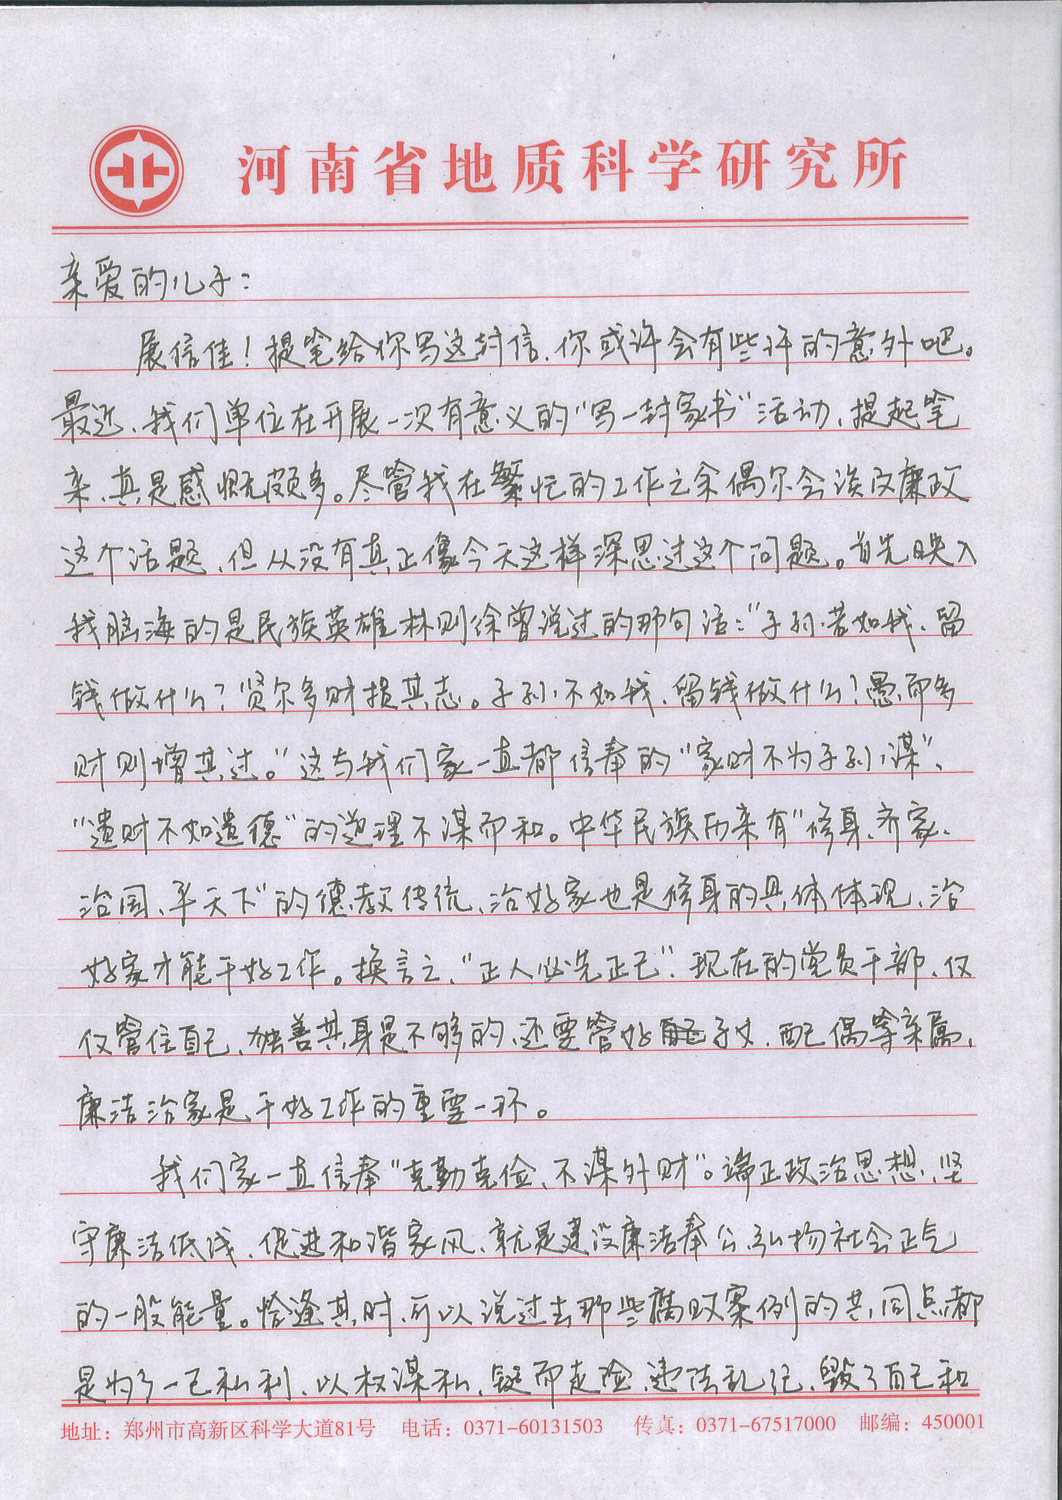 河南省地质科学研究所
亲爱的儿子：
展信佳！提笔给你写这封信、你或许会有些许的意外吧。
最近、我们单位在开展一次有意义的"写一封家书"活动、提起笔
来、真是感慨颇多。尽管我在繁忙的工作之余偶尔会谈及廉政
这个话题、但从没有真正像今天这样深思过这个问题。首先映入
我脑海的是民族英雄林则徐曾说过的那句话："子孙若如我、留
钱做什么？贤尔多财损其志。子孙不如我、留钱做什么！愚而多
财则增其过。"这与我们家一直都信奉的"家财不为子孙谋"、
"遗财不如遗德"的道理不谋而和。中华民族历来有"修身、齐家、
治国、平天下"的德教传统、治好家也是修身的具体体现、治
好家才能干好工作。换言之、"正人必先正己"、现在的党员干部、仅
仅管住自己、独善其身是不够的、还要管好子女、配偶等亲属、
廉洁治家是干好工作的重要一环。
我们家一直信奉"克勤克俭、不谋外财"。端正政治思想、坚
守廉洁底线、促进和谐家风、就是建设廉洁奉公、弘扬社会正气
的一股能量。恰逢其时、可以说过去那些腐败案例的共同点都
是为了一己私利、以权谋私、铤而走险、违法乱纪、毁了自己和
地址：郑州市高新区科学大道81号 电话：0371-60131503 传真：0371-67517000 邮编：450001